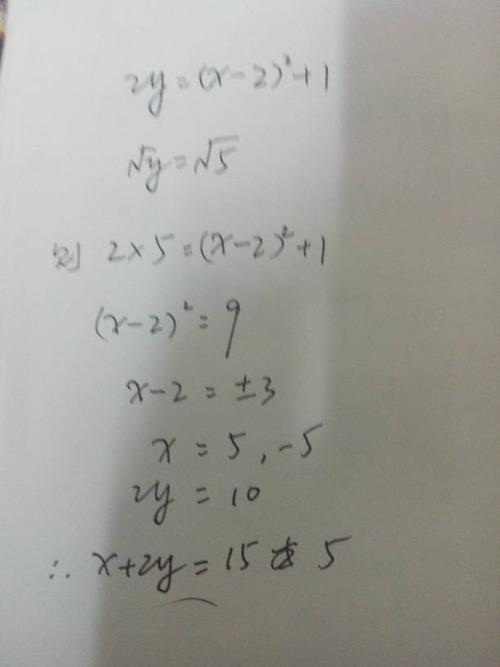 2y=(x-2)²+1
√y=√5
则 2×5=(x-2)²+1
(x-2)²=9
x-2=±3
x=5,-5
2y=10
∴ x+2y=15或 5